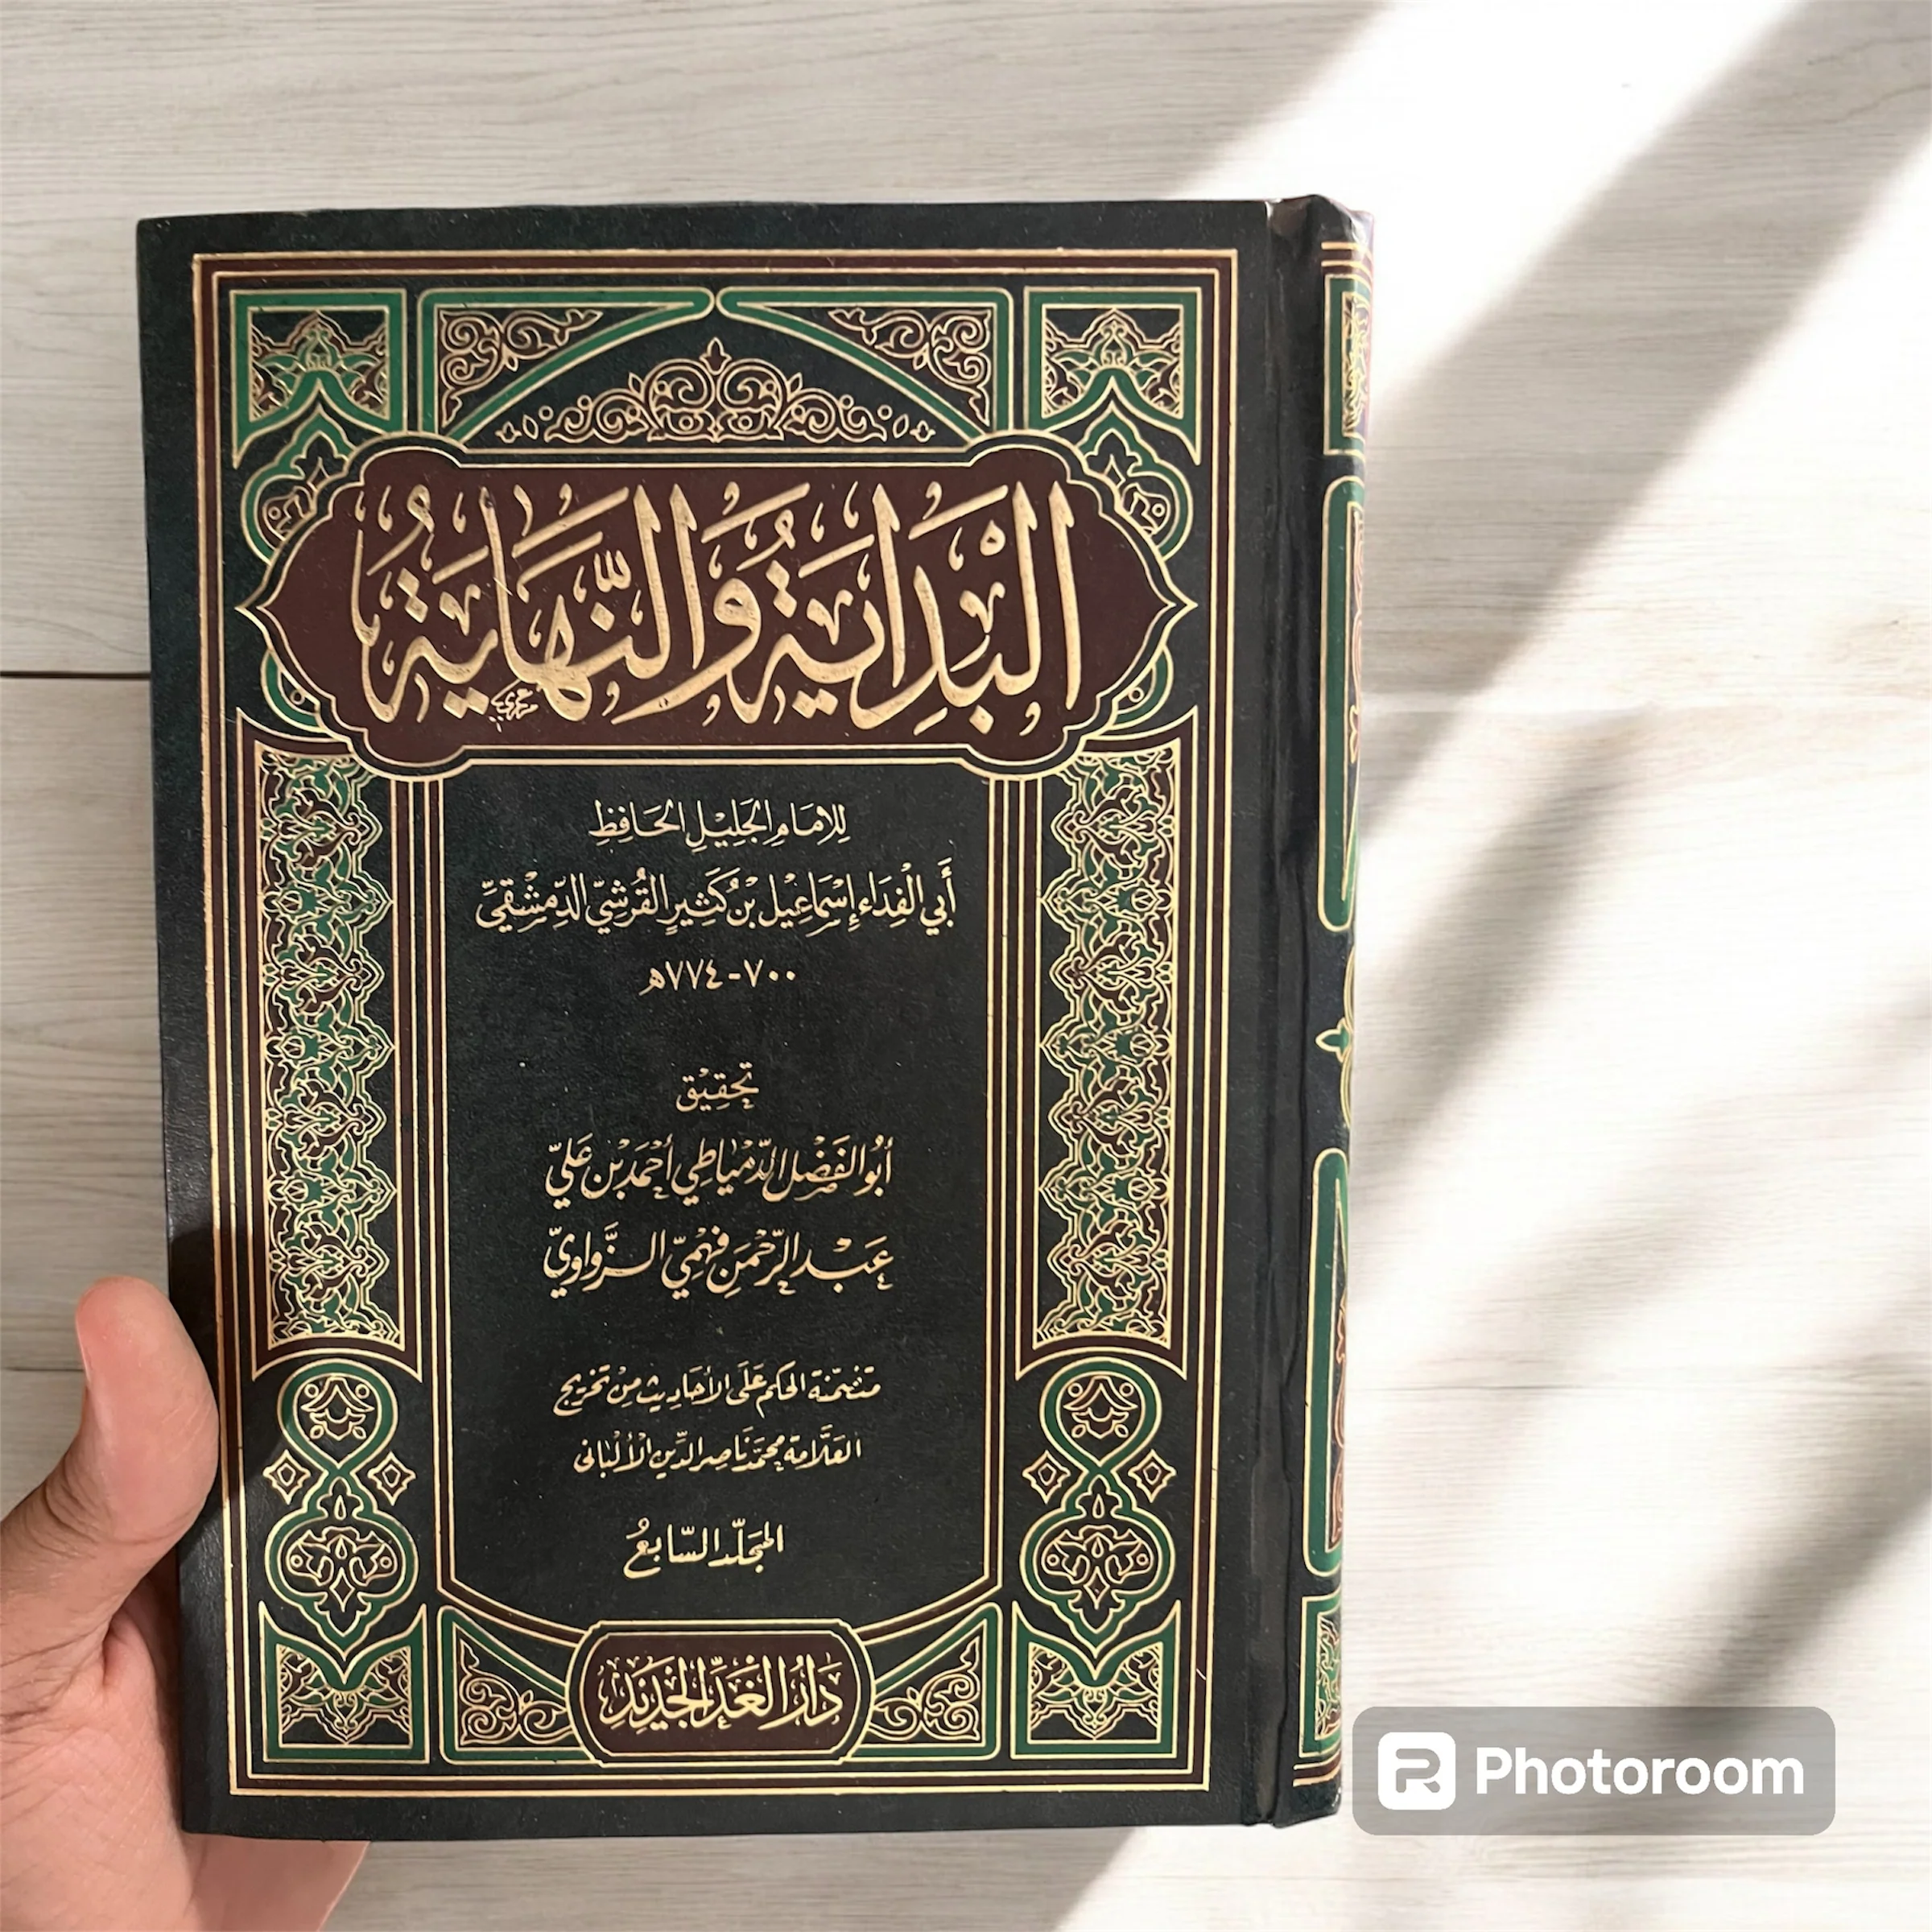 البْدَايَةُ وَالنِّهَايَةُ
لِلإمَامِ الجَلِيْلِ الحَافِظِ
أَبي الْفِدَاءِ إِسْمَاعِيْل بْن كَثِيرٍ القُرَشِيّ الدِّمَشْقِيّ
٧٠٠-٧٧٤هـ
تحقِيْق
أبُو الفَضْل الدِّمْيَاطِي أحْمَد بْن عَليّ
عَبْد الرَّحْمَن فَهْمِيّ الزَّوَاوِيّ
متضمّنة الحكم عَلَى الأحَادِيث مِنْ تخريج
العَلَّامة محمّد نَاصِر الدِّين الأَلْبَانى
المجَلّد السَّابِعُ
دَارُ الْغَدِ الْجَدِيْدِ
Photoroom